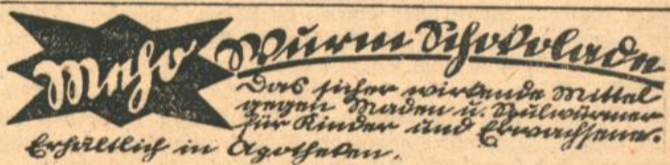 Meho Wurm Schokolade
Das sicher wirkende Mittel
gegen Maden u. Spulwürmer
für Kinder und Erwachsene.
Erhältlich in Apotheken.